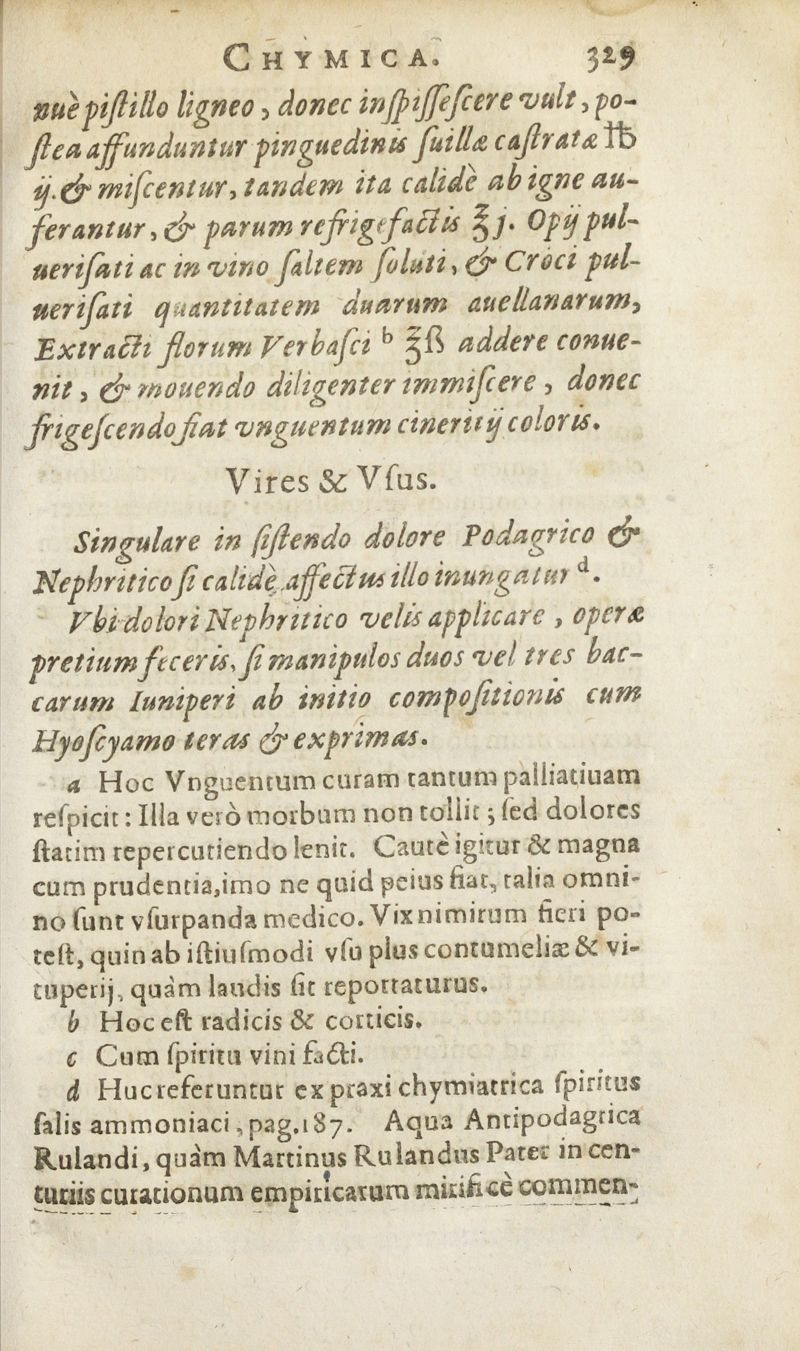 CHYMICA. 329
nuè piſtillo ligneo, donec inſpiſſeſcere vult, po-
ſtea affunduntur pinguedinis ſuillæ caſtratæ ℔
ij. & miſcentur, tandem ita calidè ab igne au-
ferantur, & parum refrigefactis ℥j. Opij pul-
ueriſati ac in vino ſaltem ſoluti, & Croci pul-
ueriſati quantitatem duarum auellanarum,
Extracti florum Verbaſci b ℥ß addere conue-
nit, & mouendo diligenter immiſcere, donec
frigeſcendo fiat vnguentum cineritij coloris.
Vires & Vſus.
Singulare in ſiſtendo dolore Podagrico &
Nephritico ſi calidè affectus illo inungatur d.
Vbi dolori Nephritico velis applicare, operæ
pretium feceris, ſi manipulos duos vel tres bac-
carum Iuniperi ab initio compoſitionis cum
Hyoſcyamo teras & exprimas.
a Hoc Vnguentum curam tantum palliatiuam
reſpicit: Illa verò morbum non tollit; ſed dolores
ſtatim repercutiendo lenit. Cautè igitur & magna
cum prudentia, imo ne quid peius fiat, talia omni-
no ſunt vſurpanda medico. Vix nimirum fieri po-
teſt, quin ab iſtiuſmodi vſu plus contumeliæ & vi-
tuperij, quàm laudis ſit reportaturus.
b Hoc eſt radicis & corticis.
c Cum ſpiritu vini facti.
d Huc referuntur ex praxi chymiatrica ſpiritus
ſalis ammoniaci, pag. 187. Aqua Antipodagrica
Rulandi, quàm Martinus Rulandus Pater in cen-
turiis curationum empiricarum mirificè commen-